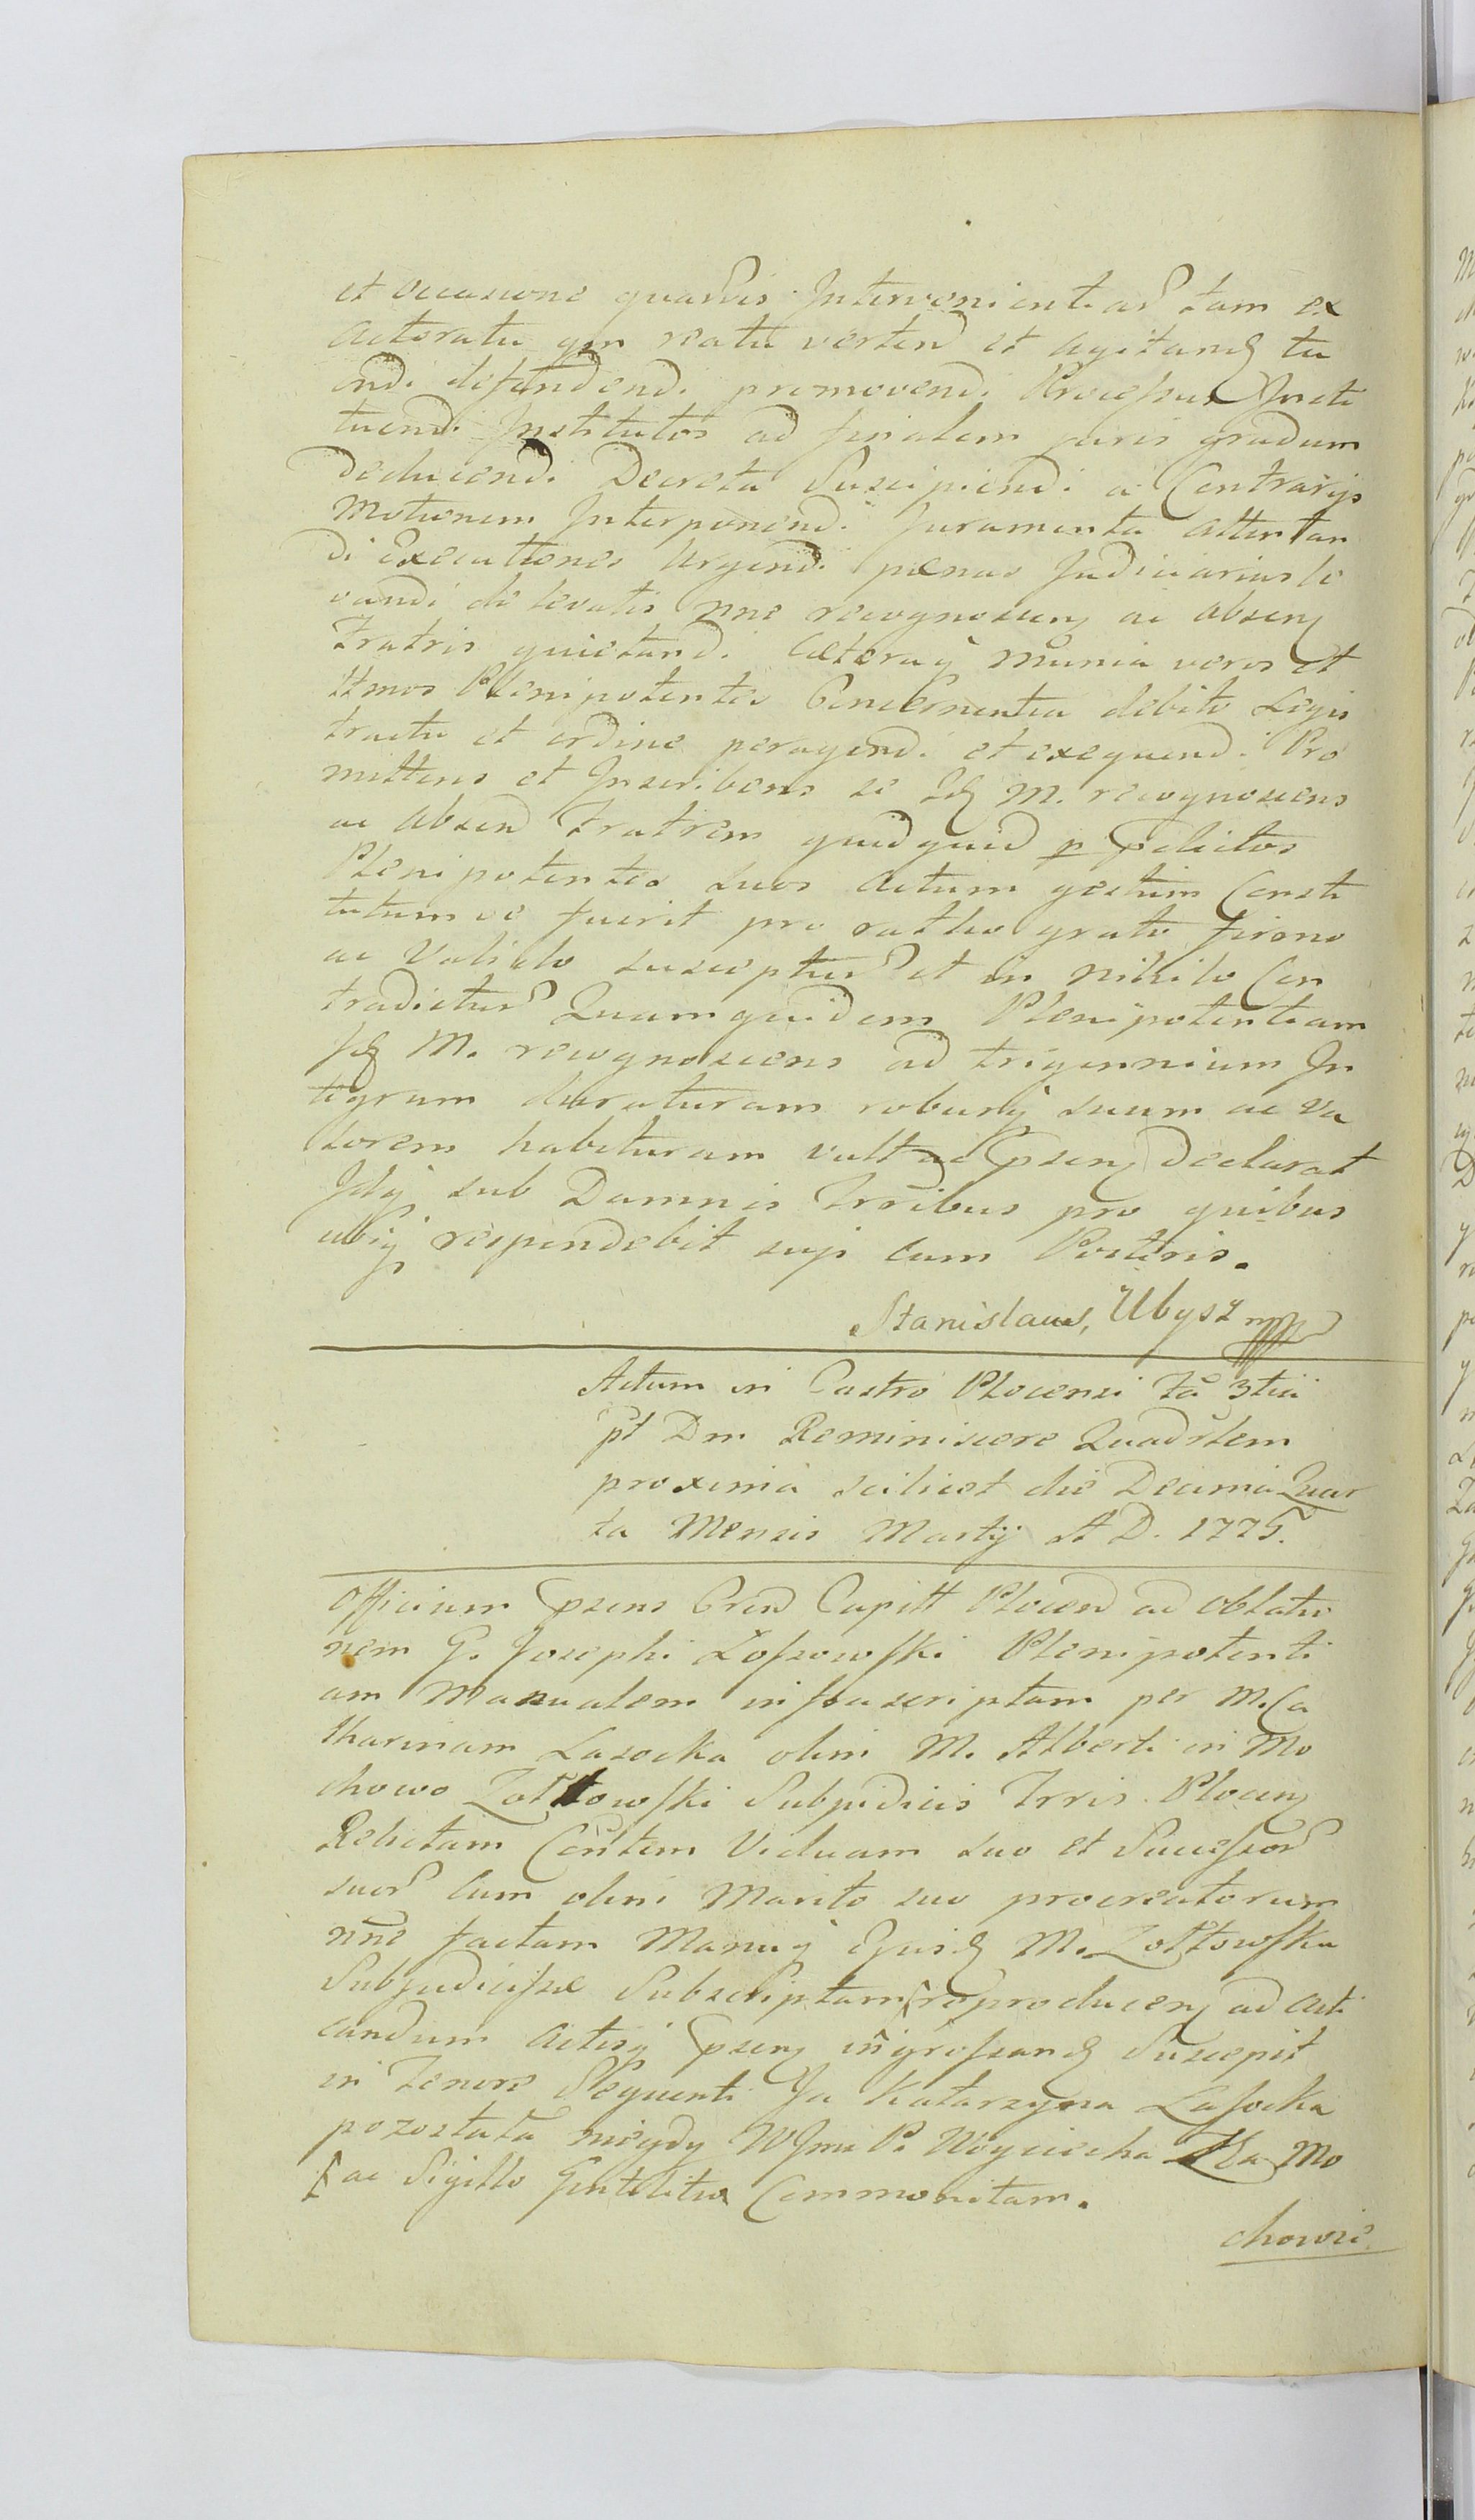 et occasione quarvis Intervenientiar tam ex
actoratu qm reatu verten et agitand tu
endi defendendi promovendi Processus Insti
tuendi Institutos ad finalem juris gradum
deducendi Decreta Suscipiendi a Contrarijs
Motionem Interponendi Juramenta attentan
di Executiones Urgendi pænas Judiciarias le
vandi de levatis nne recognoscen ac absen
Fratris quietandi Cæteraq munia veros et
ltmos Plenipotentes Concernentia debito Legis
tractu et ordine peragendi et exequendi Pro
mittens et Inscribens se Id M. recognoscens
ac absen Fratrem quidquid p Pdictos
Plenipotentes suos actum gestum Consti
tutum ve fuerit pro ratho grato firmo
ac Valido susceptur et in nihilo Con
tradictur Quamquidem Plenipotentiam
Id M. recognoscens ad trigennium In
tegrum duraturam roburq suum ac va
lorem habituram vult ac Psen declarat
Idq sub Damnis Trribus pro quibus
ubiq respondebit suis cum Posteris.
Stanislaus, Ubysz mpp
Actum in Castro Plocensi Fa 3tia
pt Dm Reminiscere Quadrlem
proxima scilicet die Decima Quar
ta Mensis Martij A D. 1775.
Officium Psens Cren Capitt Plocen ad oblatio
nem G. Josephi Łossowski Plenipotenti
am Manualem infrascriptam per M. Ca
tharinam Lasocka olim M. Alberti in Mo
chowo Zołtowski Subjudicis Trris Plocen
Relictam Contem Viduam suo et Successor
suor cum olim Marito suo procreatorum
nne factam Manuq Ejusd M. Zołtowska
Subjudicissæ Subscriptam [roproducen ad acti
candum actisq Psen ingrossand Suscepit
in Tenore Sequenti Ja Katarzyna Lasocka
pozostała niegdy WJmc P. Woyciecha Na Mo
[ac Sigillo Gentilitio Commonitam.
chowie